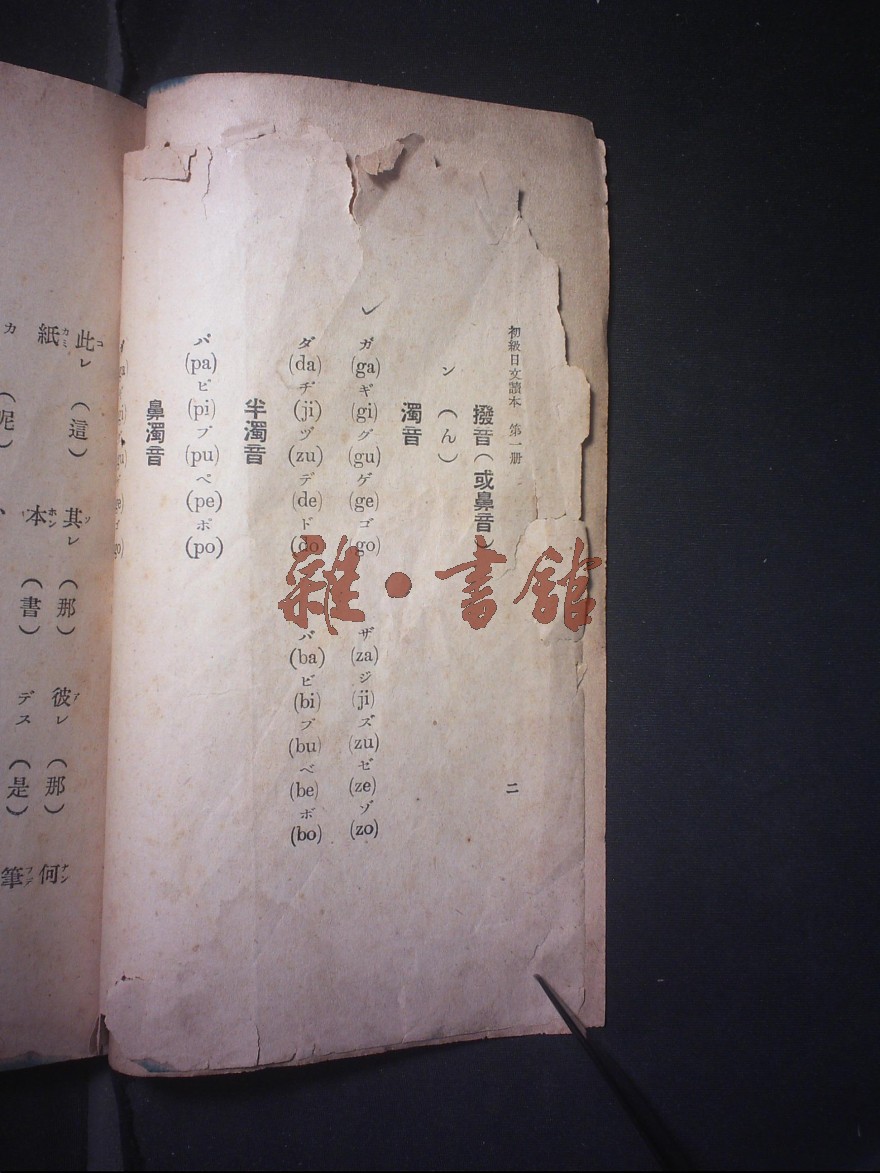 初級日文讀本 第一册
二
撥音(或鼻音)
ン (ん)
濁音
ガ(ga)ギ(gi)グ(gu)ゲ(ge)ゴ(go) ザ(za)ジ(ji)ズ(zu)ゼ(ze)ゾ(zo)
ダ(da)ヂ(ji)ヅ(zu)デ(de)ド(do) バ(ba)ビ(bi)ブ(bu)ベ(be)ボ(bo)
半濁音
パ(pa)ピ(pi)プ(pu)ペ(pe)ポ(po)
鼻濁音
此レ (這) 其レ (那) 彼レ (那) 何
紙 本 (書) デス (是) 筆
カ (呢)
雜·書館